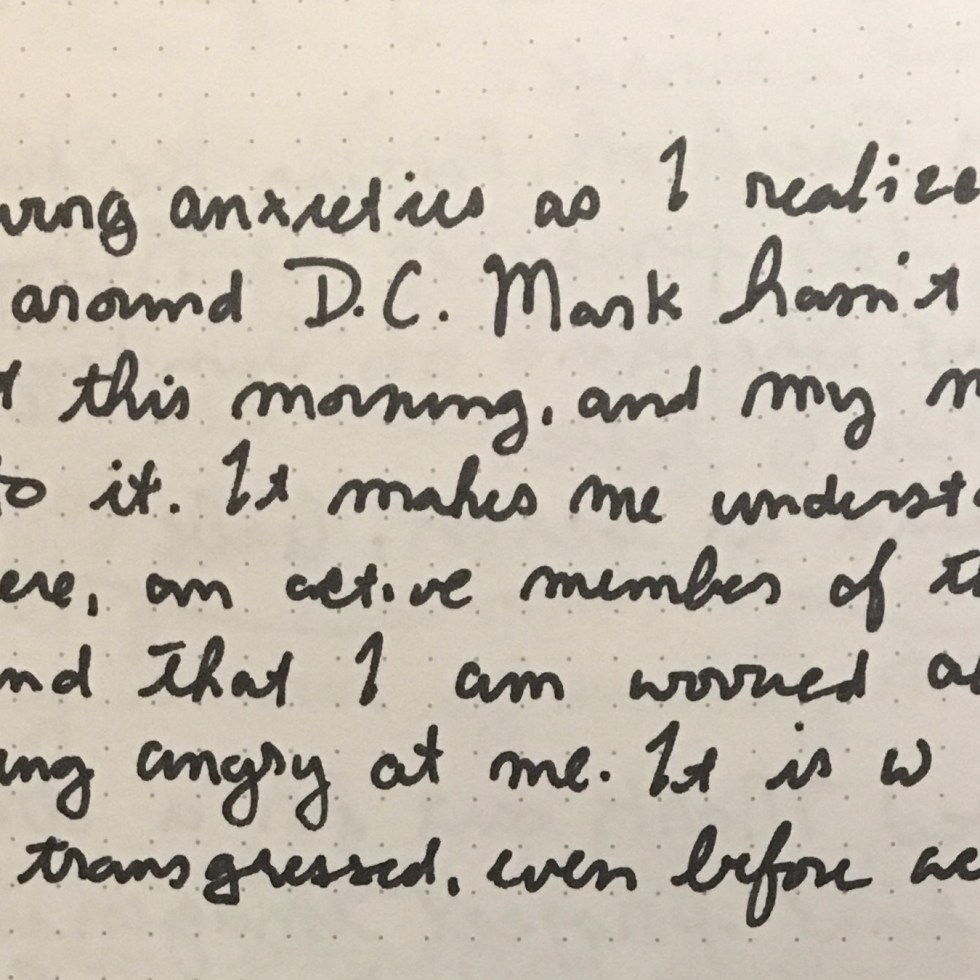 ving anxieties as I realize
around D.C. Mark hasn't
this morning, and my m
to it. It makes me underst
ere, an active member of th
nd that I am worried ab
ing angry at me. It is w
transgressed, even before ac